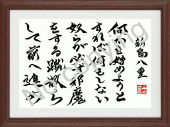 新島八重
何かを始めようと
すれば何もしない
奴らが必ず邪魔
をする蹴散ら
して前へ進め